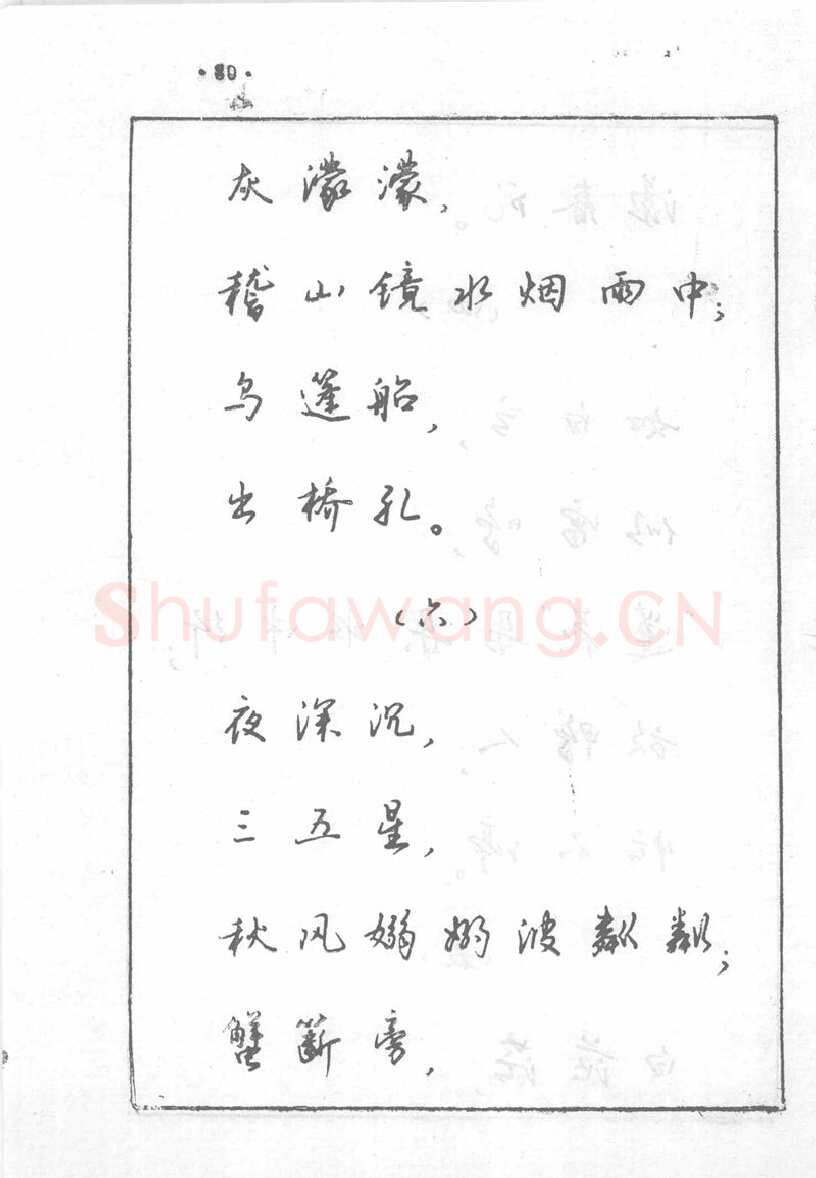 ·80·
灰濛濛，
稽山镜水烟雨中；
乌篷船，
出桥孔。
（六）
Shufawang.CN
夜深沉，
三五星，
秋风嫋嫋波粼粼；
蟹簖旁，